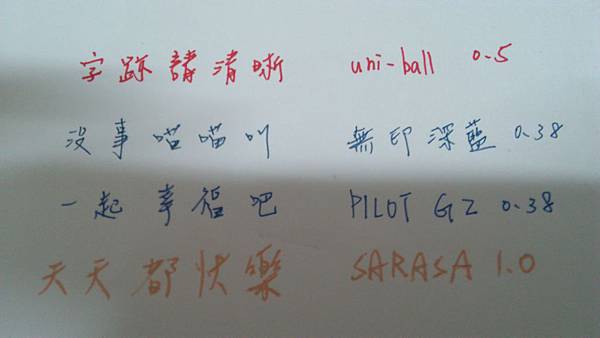 字跡請清晰 uni-ball 0.5
沒事喵喵叫 無印深藍 0.38
一起幸福吧 PILOT G2 0.38
天天都快樂 SARASA 1.0